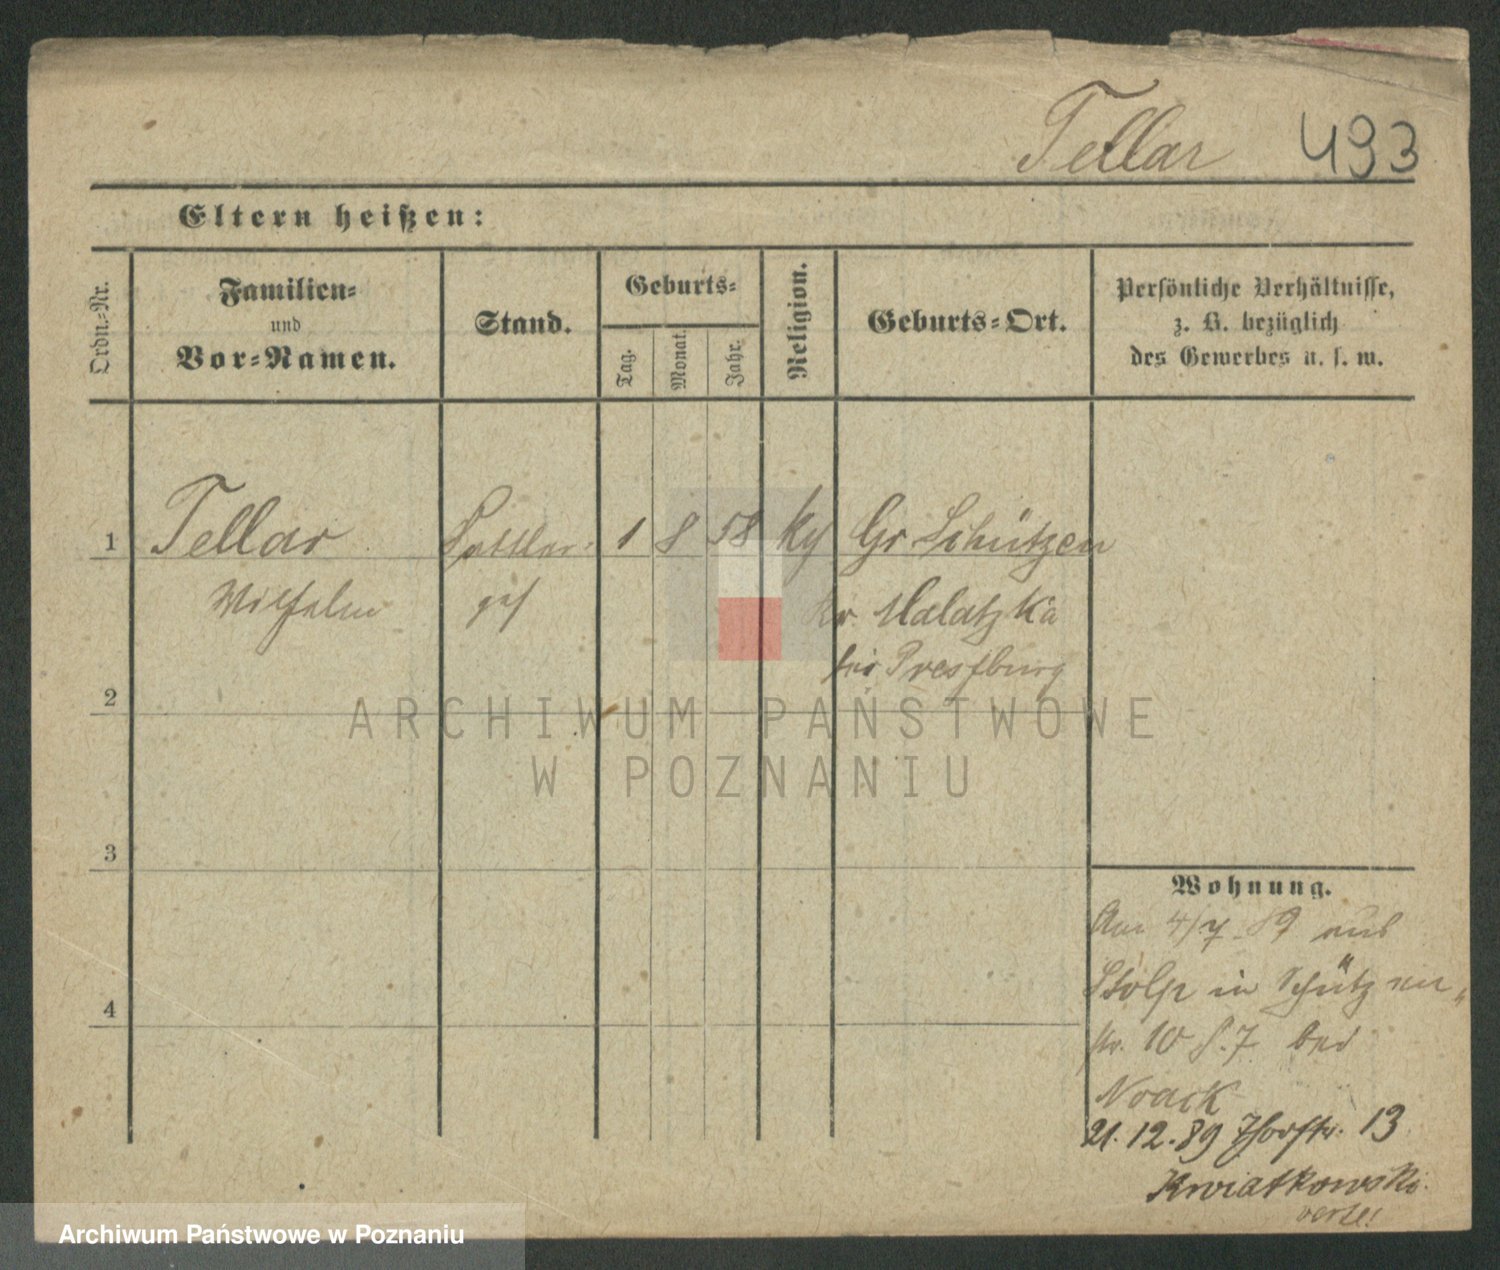 Tellar 493
Eltern heißen:
Ordn.-Nr.
Familien-
und
Vor-Namen.
Stand.
Geburts-
Tag.
Monat.
Jahr.
Religion.
Geburts-Ort.
Persönliche Verhältnisse,
z. B. bezüglich
des Gewerbes u. s. w.
1 Tellar Sattler- 1 8 58 Gr Schützen
Wilhelm ges Kr. Malatzka
bei Pressburg
2
3
4
ARCHIWUM PAŃSTWOWE
W POZNANIU
Wohnung.
Am 4/7. 89 aus
Stolp in Schützen-
str. 10 bei
Noack
21.12.89 Thorstr. 13
Kwiatkowski
verte!
Archiwum Państwowe w Poznaniu